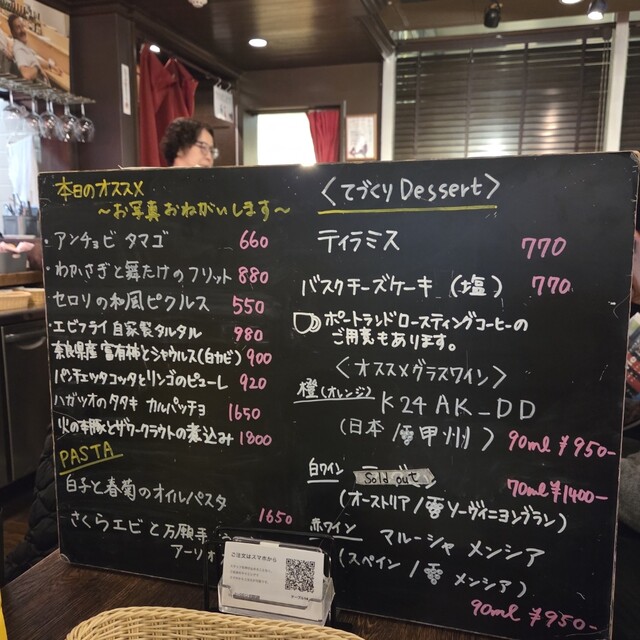 本日のオススメ
～お写真おねがいします～
・アンチョビ タマゴ 660
・わかさぎと舞たけのフリット 880
・セロリの和風ピクルス 550
・エビフライ 自家製タルタル 980
奈良県産 富有柿とシャウルス(白カビ) 900
パンチェッタコッタとリンゴのピューレ 920
ハガツオのタタキ カルパッチョ 1650
火の本豚とザワークラウトの煮込み 1800
PASTA
白子と春菊のオイルパスタ
1650
さくらエビと万願寺
アーリオ
〈てづくり Dessert〉
ティラミス 770
バスクチーズケーキ (塩) 770
ポートランドロースティングコーヒーの
ご用意もあります。
〈オススメグラスワイン〉
橙(オレンジ) K24AK_DD
(日本/甲州) 90ml ¥950-
白ワイン Sold out 70ml ¥1400-
(オーストリア/ソーヴィニヨンブラン)
赤ワイン マルーシャ メンシア
(スペイン/メンシア)
90ml ¥950-
ご注文はスマホから